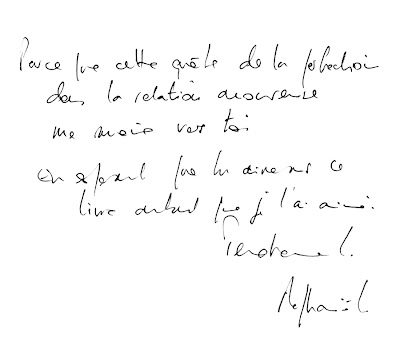 Parce que cette quête de la perfection
dans la relation amoureuse
me mène vers toi
en espérant que tu aimeras ce
livre autant que je l'ai aimé.
Tendrement.